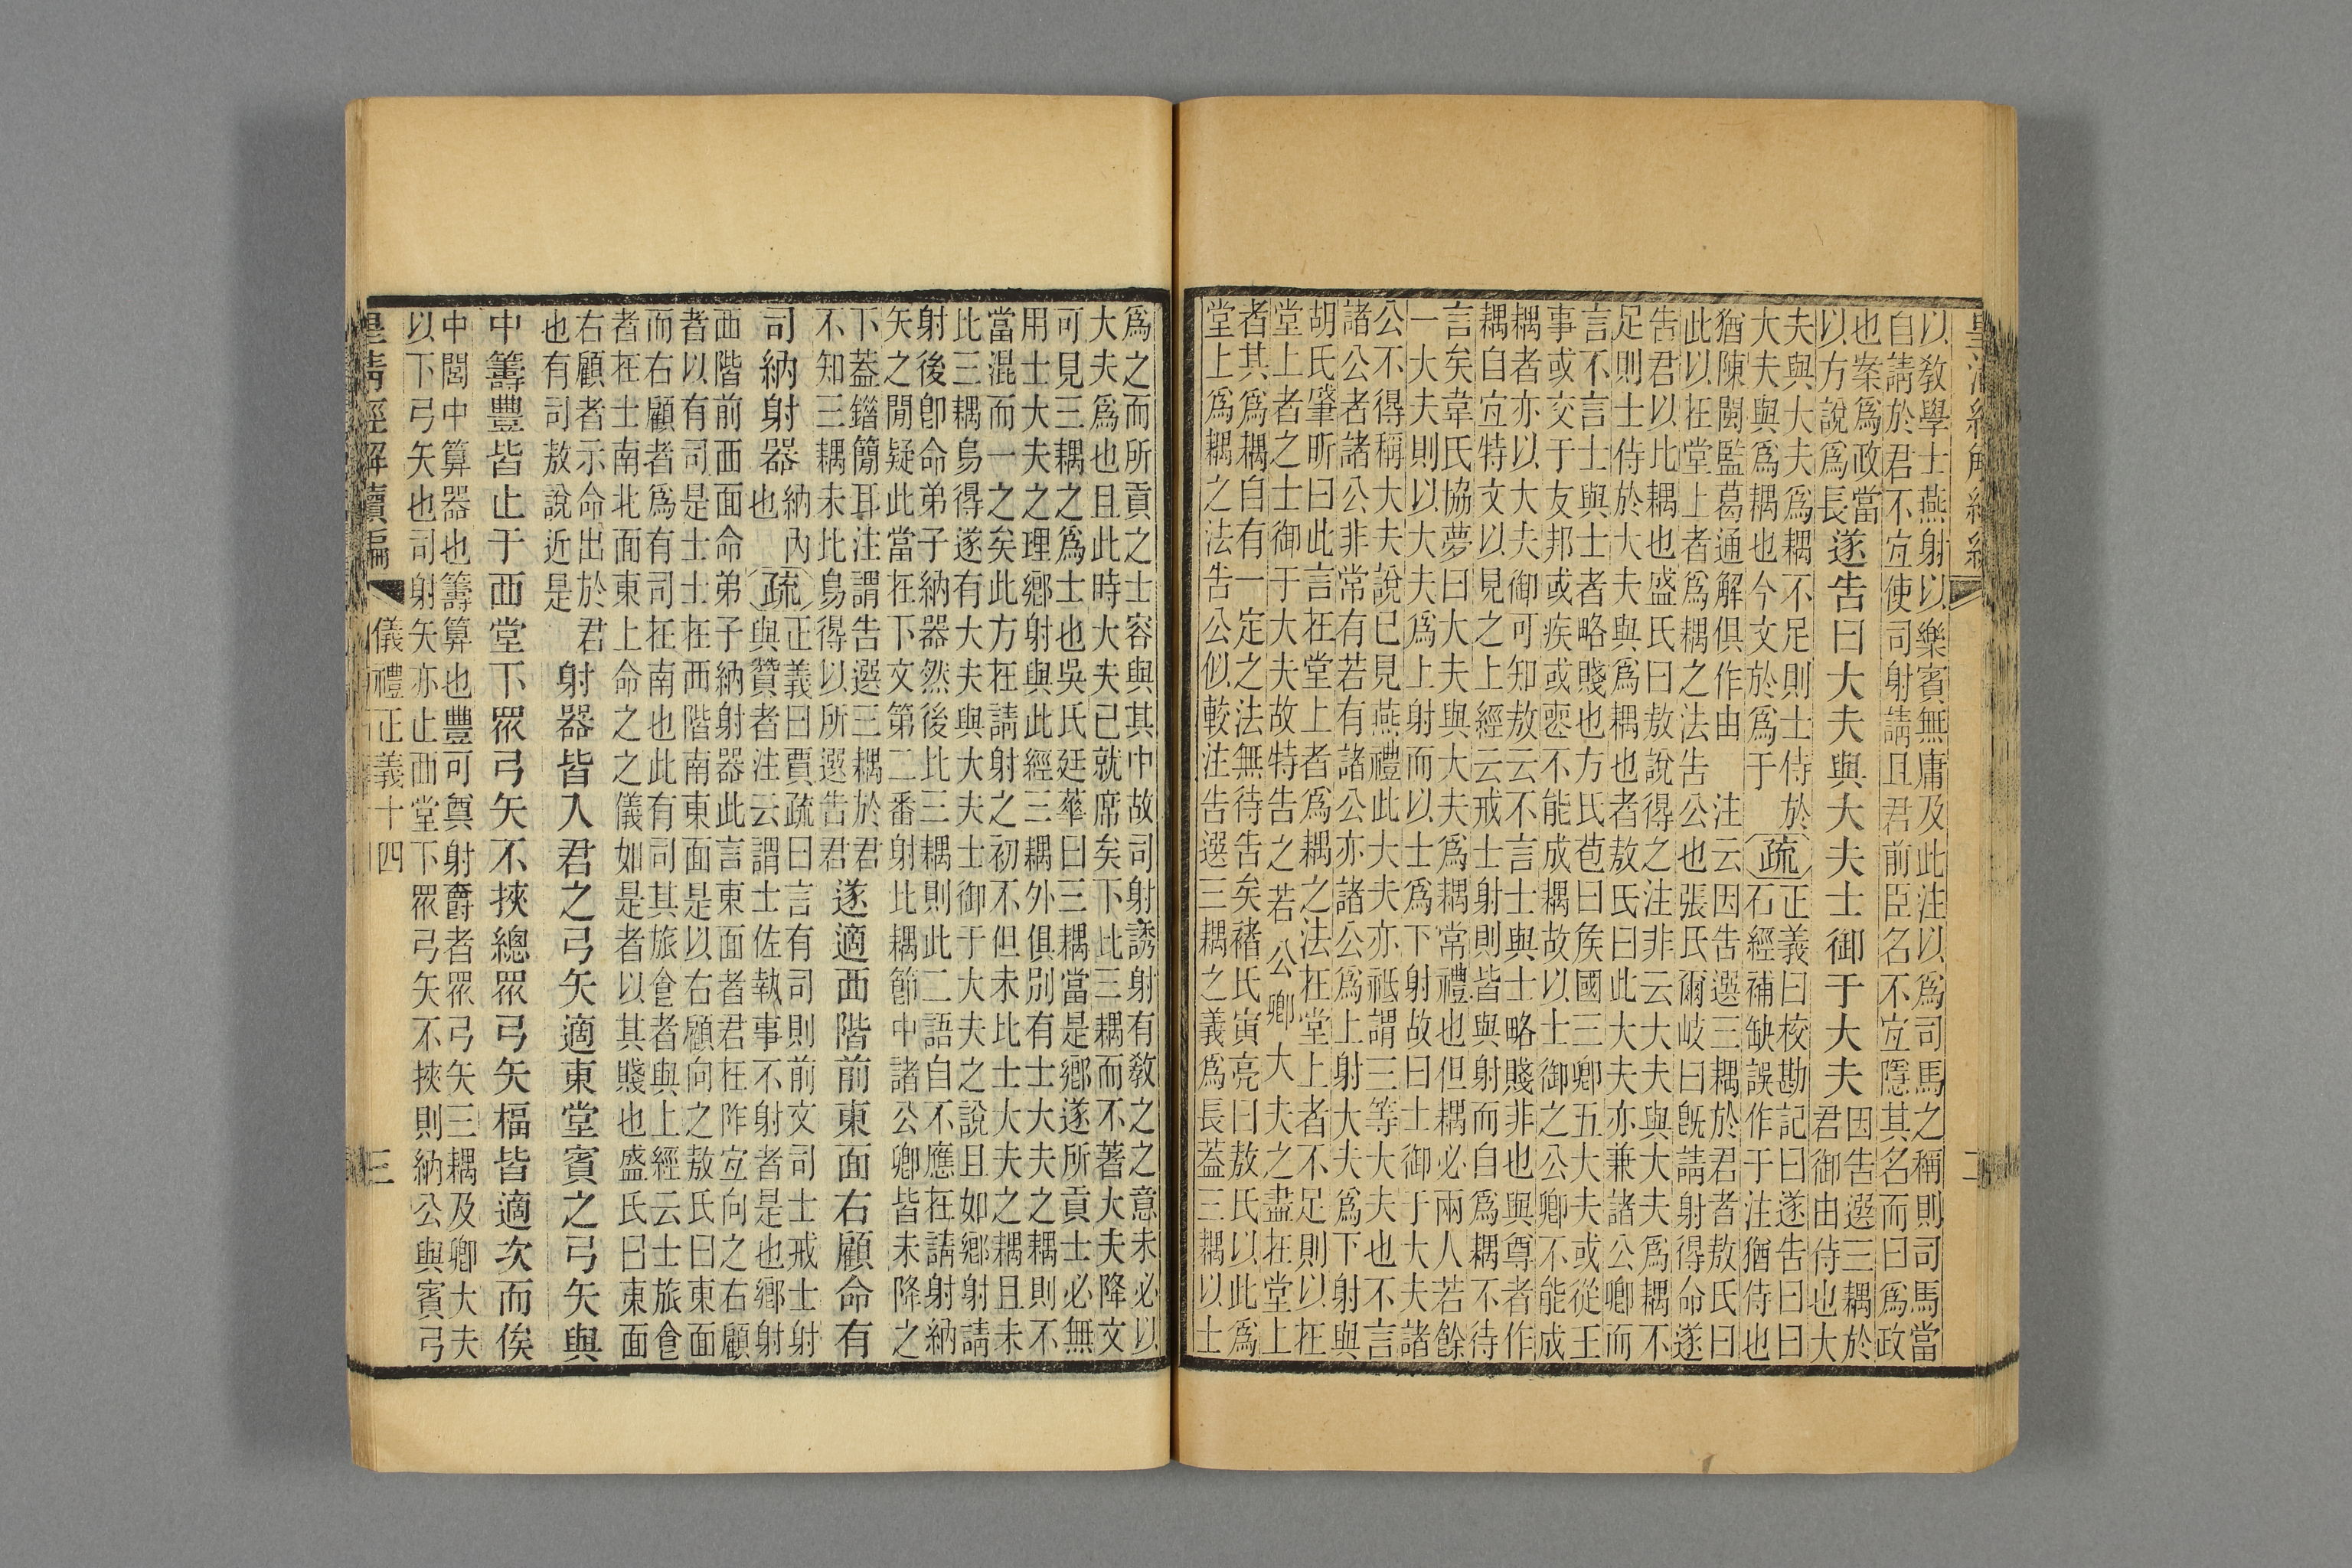 以敎學士燕射以樂賓無庸及此注以爲司馬之稱則司馬當
自請於君不宐使司射請且君前臣名不宐隱其名而曰爲政
也案爲政當
以方說爲長
遂告曰大夫與大夫士御于大夫
因告選三耦於
君御由侍也大
夫與大夫爲耦不足則士侍於
大夫與爲耦也今文於爲于
疏
正義曰校勘記曰遂告曰曰
石經補缺誤作于注猶侍也
猶陳閩監葛通解俱作由　注云因告選三耦於君者敖氏曰
此以在堂上者爲耦之法告公也張氏爾岐曰旣請射得命遂
告君以比耦也盛氏曰敖說得之注非云大夫與大夫爲耦不
足則士侍於大夫與爲耦也者敖氏曰此大夫亦兼諸公卿而
言不言士與士者略賤也方氏苞曰矦國三卿五大夫或從王
事或交于友邦或疾或恋不能成耦故以士御之公卿不能成
耦者亦以大夫御可知敖云不言士與士略賤非也與尊者作
耦自宐特文以見之上經云戒士射則皆與射而自爲耦不待
言矣韋氏協夢曰大夫與大夫爲耦常禮也但耦必兩人若餘
一大夫則以大夫爲上射而以士爲下射故曰士御于大夫諸
公不得稱大夫說已見燕禮此大夫亦祗謂三等大夫也不言
諸公者諸公非常有若有諸公亦諸公爲上射大夫爲下射與
胡氏肇昕曰此言在堂上者爲耦之法在堂上者不足則以在
堂上者之士御于大夫故特告之若公卿大夫之盡在堂上
者其爲耦自有一定之法無待告矣褚氏寅亮曰敖氏以此爲
堂上爲耦之法告公似較注告選三耦之義爲長蓋三耦以士
爲之而所貢之士容與其中故司射誘射有敎之之意未必以
大夫爲也且此時大夫已就席矣下此三耦而不著大夫降文
可見三耦之爲士也吳氏廷蕐曰三耦當是鄉遂所貢士必無
用士大夫之理鄉射與此經三耦外俱別有士大夫之耦則不
當混而一之矣此方在請射之初不但未比士大夫之耦且未
比三耦烏得遂有大夫與大夫士御于大夫之說且如鄉射請
射後卽命弟子納器然後比三耦則此二語自不應在請射納
矢之閒疑此當在下文第二番射比耦節中諸公卿皆未降之
下蓋錯簡耳注謂告選三耦於君
不知三耦未比烏得以所選告君
遂適西階前東面右顧命有
司納射器
納內
也
疏
正義曰賈疏曰言有司則前文司士戒士射
與贊者注云謂士佐執事不射者是也鄉射
西階前西面命弟子納射器此言東面者君在阼宐向之右顧
者以有司是士士在西階南東面是以右顧向之敖氏曰東面
而右顧者爲有司在南也此有司其旅食者與上經云士旅食
者在士南北面東上命之之儀如是者以其賤也盛氏曰東面
右顧者示命出於君
也有司敖說近是
射器皆入君之弓矢適東堂賓之弓矢與
中籌豐皆止于西堂下眾弓矢不挾總眾弓矢楅皆適次而俟
中閭中算器也籌算也豐可奠射爵者眾弓矢三耦及卿大夫
以下弓矢也司射矢亦止西堂下眾弓矢不挾則納公與賓弓
皇淸經解續編　儀禮正義十四　三